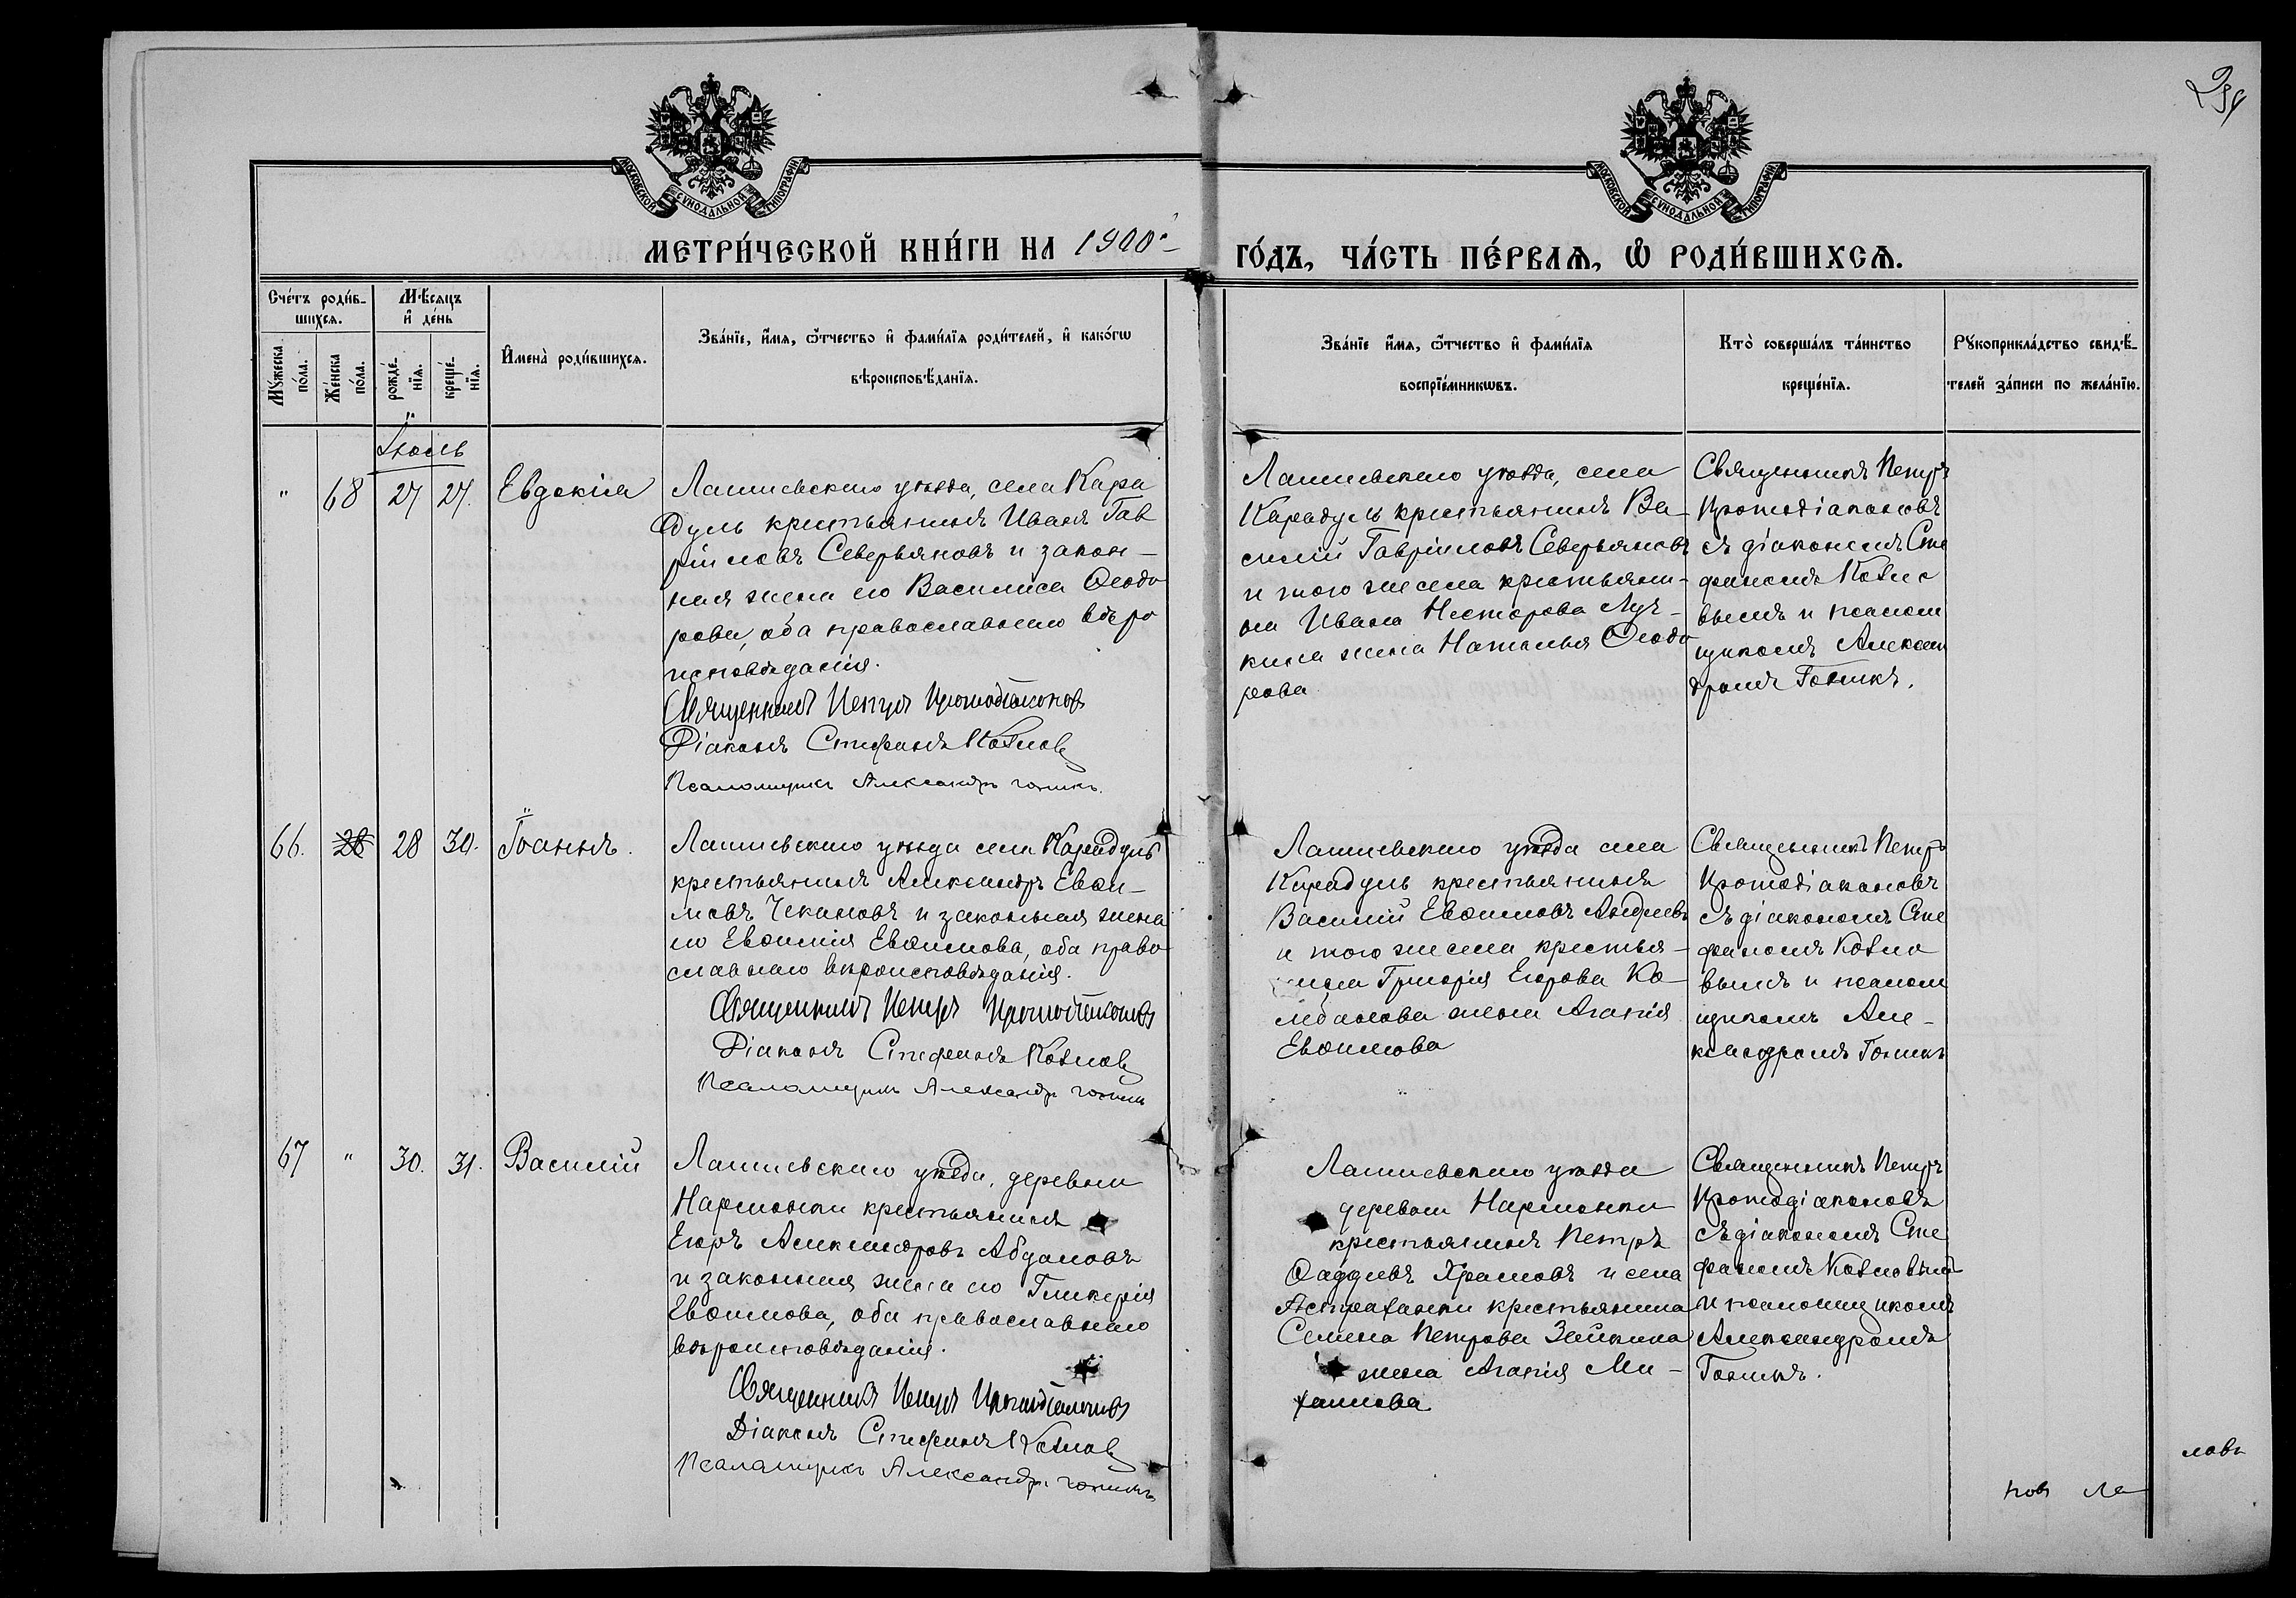 МОСКОВСКОЙ СѴНОДАЛЬНОЙ ТИПОГРАФІИ
МОСКОВСКОЙ СѴНОДАЛЬНОЙ ТИПОГРАФІИ
МЕТРИ́ЧЕСКОЙ КНИ́ГИ НА 1900.
ГО́ДЪ, ЧА́СТЬ ПЕ́РВАѦ, Ѡ҆ РОДИ́ВШИХСѦ.
Счéтъ роди́в-
шихсѧ.
Мѣ́сѧцъ
и҆ дéнь
Мꙋ́жеска
пóла.
Жéнска
пóла.
рождé-
нїѧ.
крещé-
нїѧ.
И҆мена̀ роди́вшихсѧ.
Звáнїе, и҆́мѧ, ѻ҆́тчество и҆ фами́лїѧ роди́телей, и҆ какóгѡ
вѣроисповѣ́данїѧ.
Звáнїе и҆́мѧ, ѻ҆́тчество и҆ фами́лїѧ
воспрїéмникѡвъ.
Кто̀ совершáлъ тáинство
крещéнїѧ.
Рꙋкоприклáдство свидѣ́-
телей зáписи по желáнїю.
Іюль
" 68 27 27. Евдокія
Лаишевскаго уѣзда, села Кара
дуль крестьянинъ Иванъ Гав
ріиловъ Северьяновъ и закон-
ная жена его Василиса Ѳеодо
рова, оба православнаго вѣро
исповѣданія.
Священникъ Петръ Протодіаконовъ
Діаконъ Стефанъ Козловъ
Псаломщикъ Александръ
Лаишевскаго уѣзда, села
Карадуль крестьянинъ Ва-
силій Гавріиловъ Северьяновъ
и того же села крестьяни-
на Ивана Нестерова Луч-
кина жена Наталья Ѳеодо
рова
Священникъ Петръ
Протодіаконовъ
съ діакономъ Сте
фаномъ Козло
вымъ и псалом
щикомъ Алексан
дромъ
66. 28 28 30. Іоаннъ.
Лаишевскаго уѣзда села Карадуль
крестьянинъ Александръ Евѳи-
мовъ Чекановъ и законная жена
его Евѳимія Евѳимова, оба право
славнаго вѣроисповѣданія.
Священникъ Петръ Протодіаконовъ
Діаконъ Стефанъ Козловъ
Псаломщикъ Александръ
Лаишевскаго уѣзда села
Карадуль крестьянинъ
Василій Евѳимовъ Андреевъ
и того же села крестья-
нина Григорія Егорова Ко-
жена Агапія
Евѳимова
Священникъ Петръ
Протодіаконовъ
съ діакономъ Сте
фаномъ Козло
вымъ и псалом
щикомъ Але-
ксандромъ
67 " 30. 31. Василій
Лаишевскаго уѣзда, деревни
Нармонки крестьянинъ
Егоръ Александровъ Абдаловъ
и законная жена его Гликерія
Евѳимова, оба православнаго
вѣроисповѣданія.
Священникъ Петръ Протодіаконовъ
Діаконъ Стефанъ Козловъ
Псаломщикъ Александръ
Лаишевскаго уѣзда
деревни Нармонки
крестьянинъ Петръ
Ѳаддеевъ Храмовъ и села
Астраханки крестьянина
Семена Петрова Зайкина
жена Агапія Ми-
хаилова
Священникъ Петръ
Протодіаконовъ
съ діакономъ Сте
фаномъ Козловымъ
и псаломщикомъ
Александромъ
ловъ